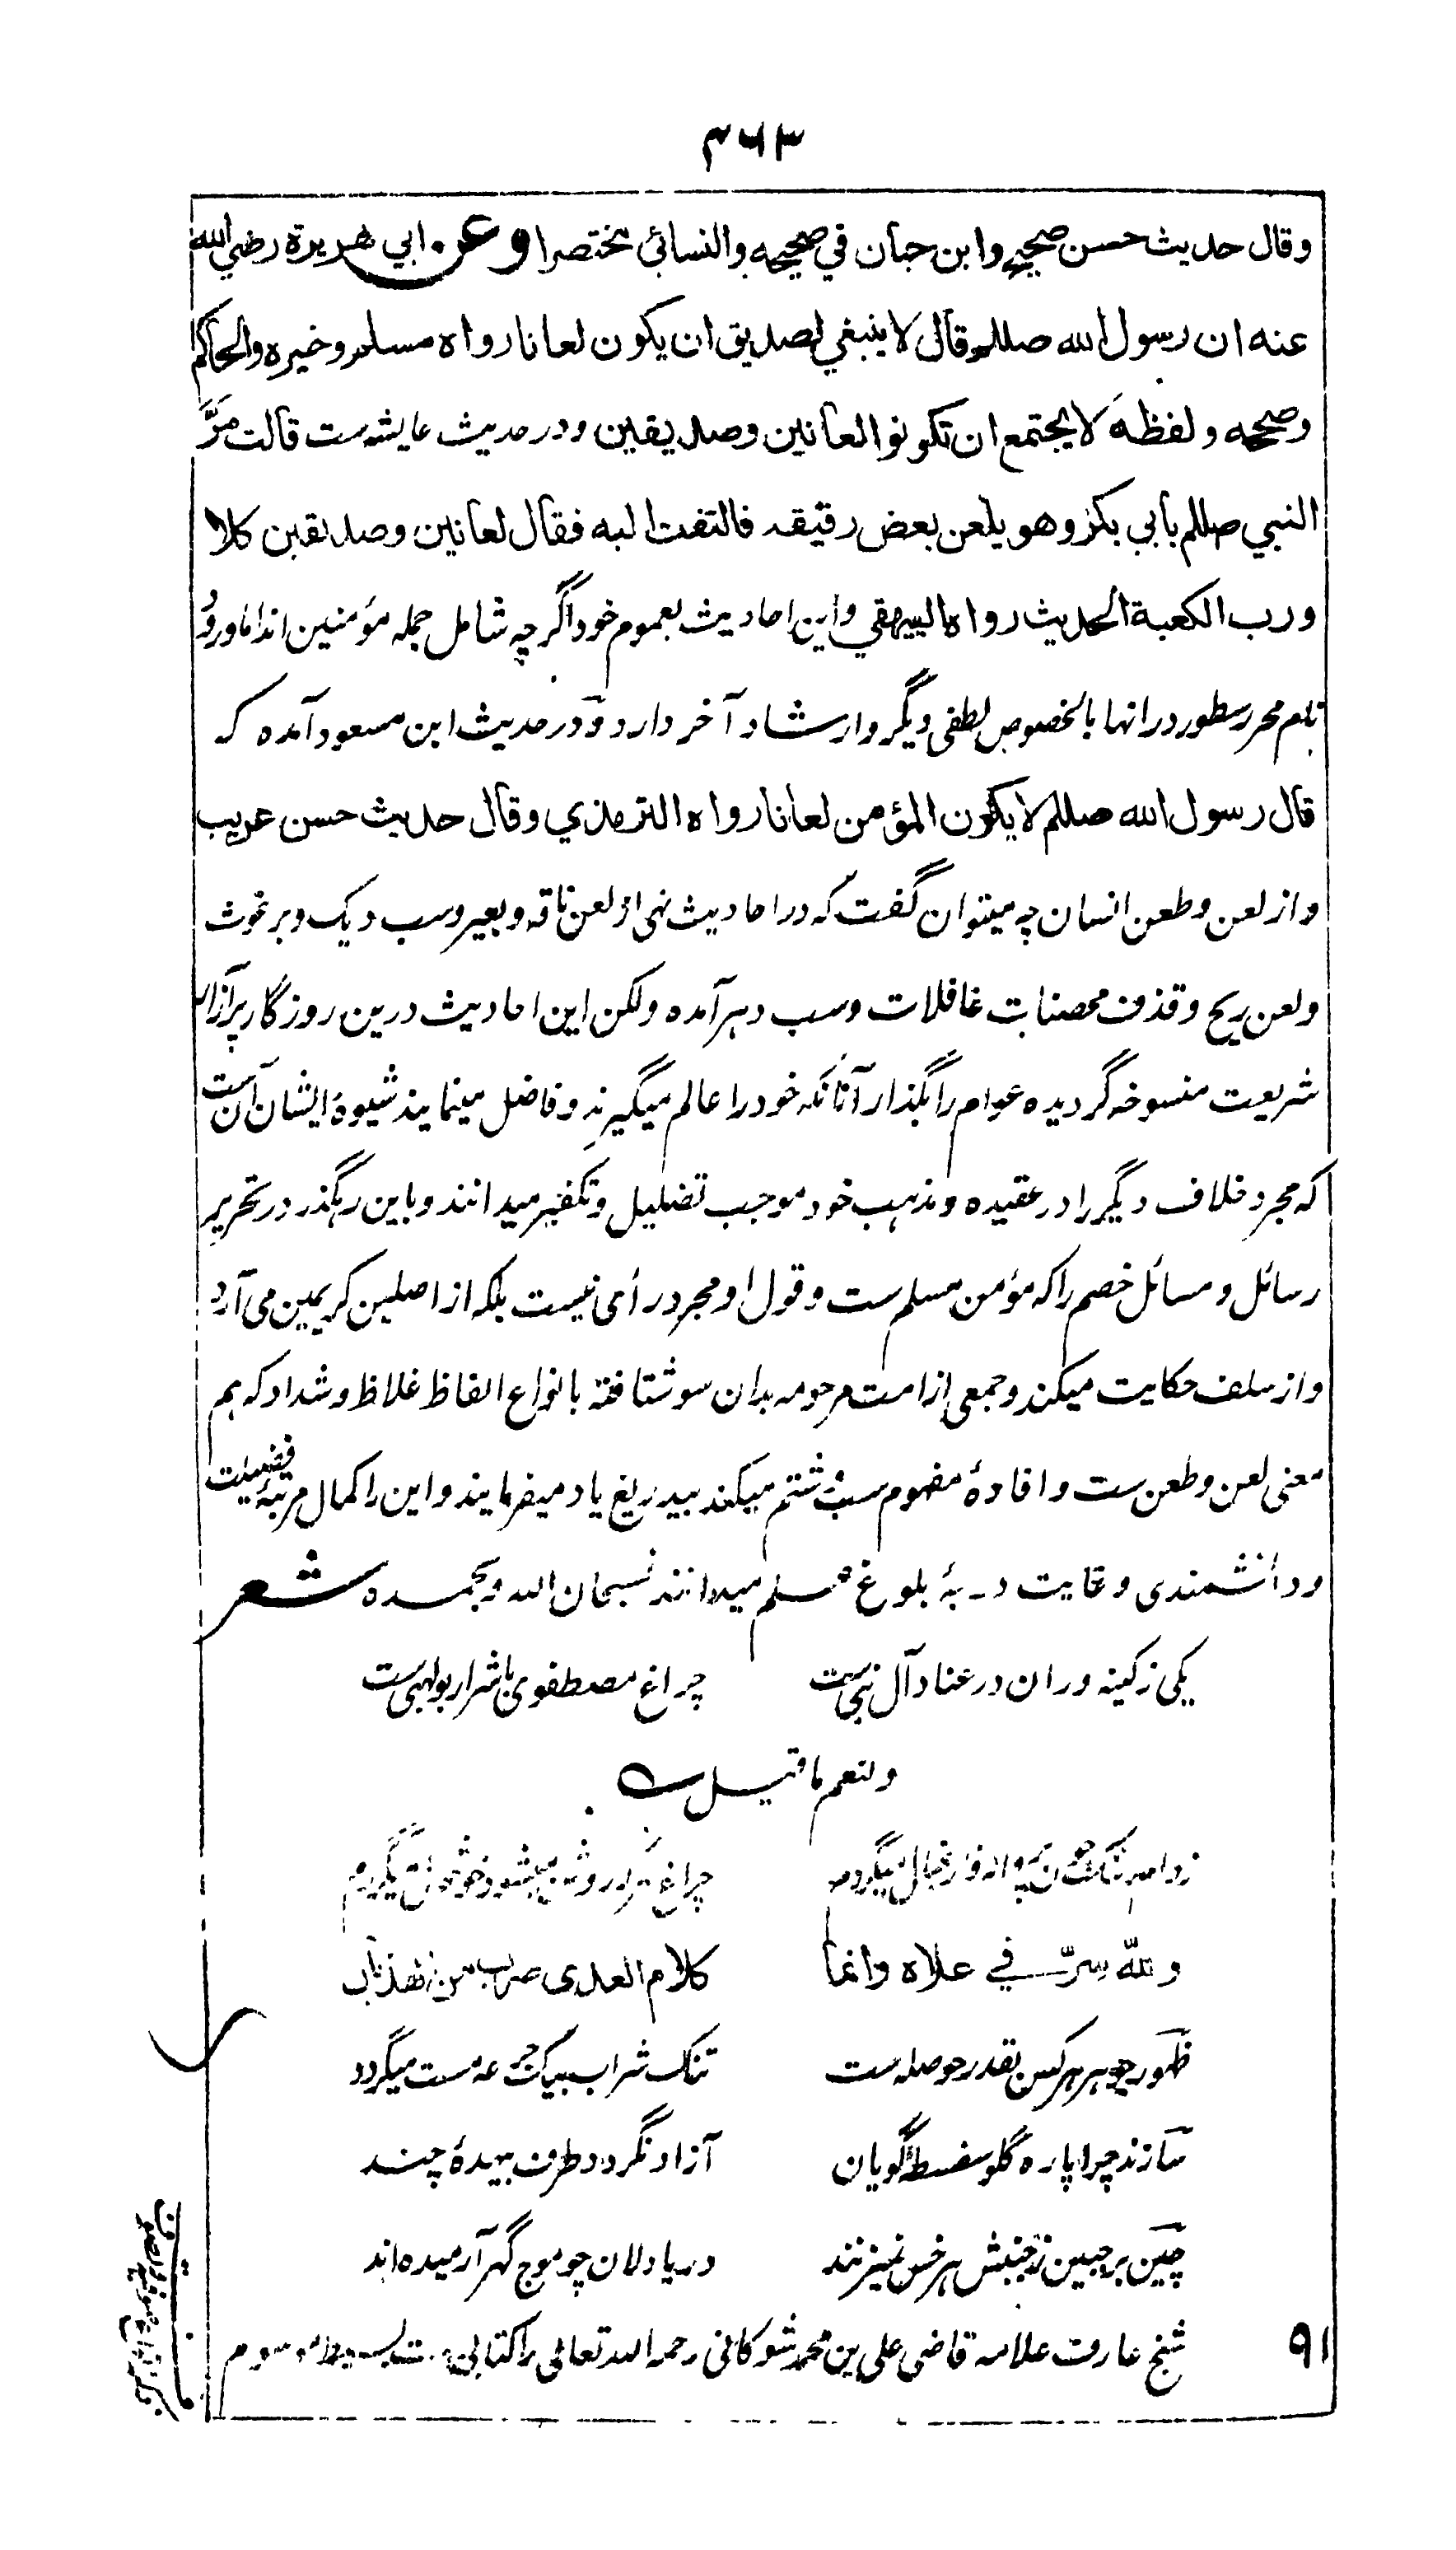 ۳۶۳
وقال حديث حسن صحيح وابن حبان في صحيحه والنسائي مختصرا وعن ابي هريرة رضي الله
عنه ان رسول الله صللم قال لا ينبغي لصديق ان يكون لعانا رواه مسلم وغيره والحاكم
وصححه ولفظه لا يجتمع ان تكونوا لعانين وصديقين ودر حدیث عایشه ست قالت مَرَّ
النبي صللم بابي بكر وهو يلعن بعض رقيقه فالتفت اليه فقال لعانين وصديقين كلا
ورب الكعبة الحديث رواه البيهقي واین احادیث بعموم خود اگرچه شامل جمله مؤمنین اند اما ورود
بنام محرر سطور در انها بالخصوص لطفی دیگر وارشاد آخر دارد ودر حدیث ابن مسعود آمده که
قال رسول الله صللم لا يكون المؤمن لعانا رواه الترمذي وقال حديث حسن غريب
واز لعن وطعن انسان چه میتوان گفت که در احادیث نهی از لعن ناقه وبعیر وسب دیک وبرغوث
ولعن ریح وقذف محصنات غافلات وسب دهر آمده ولکن این احادیث درین روزگار پرآزار
شریعت منسوخه گردیده عوام را بگذار آنانکه خود را عالم میگیرند وفاضل مینمایند شیوهٔ ایشان آن ست
که مجرد خلاف دیگر را در عقیده ومذهب خود موجب تضلیل وتکفیر میدانند وباین رهگذر در تحریر
رسائل ومسائل خصم را که مؤمن مسلم ست وقول او مجرد رأی نیست بلکه از اصلین کریمین می آرد
واز سلف حکایت میکند وجمعی از امت مرحومه بدان سو شتافته بانواع الفاظ غلاظ وشداد که هم
معنی لعن وطعن ست وافادهٔ مفهوم سب وشتم میکند بیدریغ یاد میفرمایند واین را کمال مرتبهٔ فضیلت
ودانشمندی وغایت درجهٔ بلوغ علم میدانند فسبحان الله وبحمده شعر
یکی ز کینه وران در عناد آل نبی ست
چراغ مصطفوی با شرار بولهبی ست
ولنعم ما قیل
ولله سرّ في علاه وانما
كلام العدى ضرب من الهذيان
ظهور جوهر هر کس بقدر حوصله است
تنک شراب بیک جرعه مست میگردد
سازند چرا پاره گلو سفسطه گویان
آزاد نگردد طرف بیهدهٔ چند
چین بر جبین ز جنبش هر خس نمیزنند
دریا دلان چو موج گهر آرمیده اند
۹۱ شیخ عارف علامه قاضی علی بن محمد شوکانی رحمه الله تعالی را کتابی ست بسیط موسوم